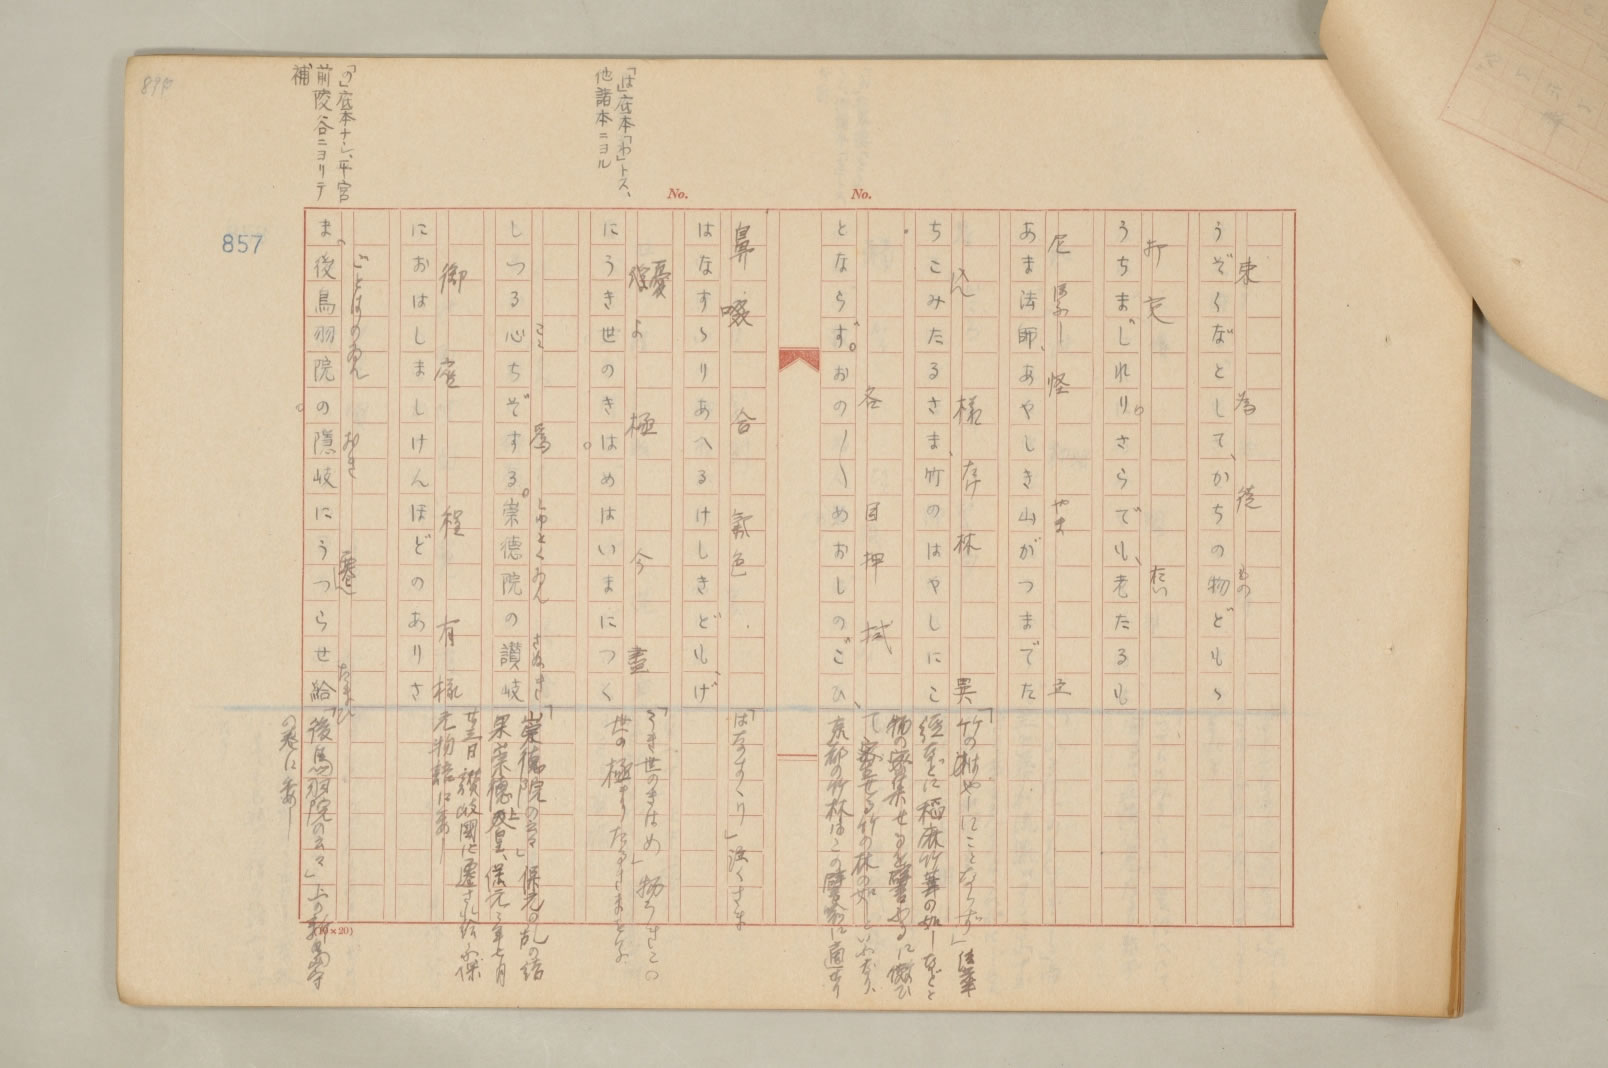 うぞくなどして、かちの物どもゝ
うちまじれり。さらでも、老たるも
あま法師、あやしき山がつまでた
ちこみたるさま、竹のはやしにこ
とならず。おの〳〵めおしのごひ、
はなすゝりあへるけしきども、げ
にうき世のきはめはいまにつく
しつる心ちぞする。崇徳院の讃岐
におはしましけんほどのありさ
ま、後鳥羽院の隠岐にうつらせ給
束 為 徒 もの
打 交 たい
尼 ほふし 怪 やま 立
込ん 様 たけ 林 異
各 目 押 拭
鼻 啜 合 氣色
憂 世 極 今 盡
ここ 為 しゆとくゐん さぬき
御 座 程 有 様
ごとばのゐん おき 遷 たまひ
「は」底本「わ」トス、
他諸本ニヨル
「の」底本ナシ、平宮
前陵谷ニヨリテ
補
「竹のはやしにことならず」法華
経などに稲麻竹葦の如しなどと
「はなすゝり」泣くさま
「うき世のきはめ」
世の極まりたるさまをいふ
「崇徳院の云々」保元の乱の結
果崇徳上皇、保元元年七月
廿三日讃岐國に遷され給ふ保
元物語に委し
「後鳥羽院の云々」上の新島守
の巻に委し
No.
No.
857